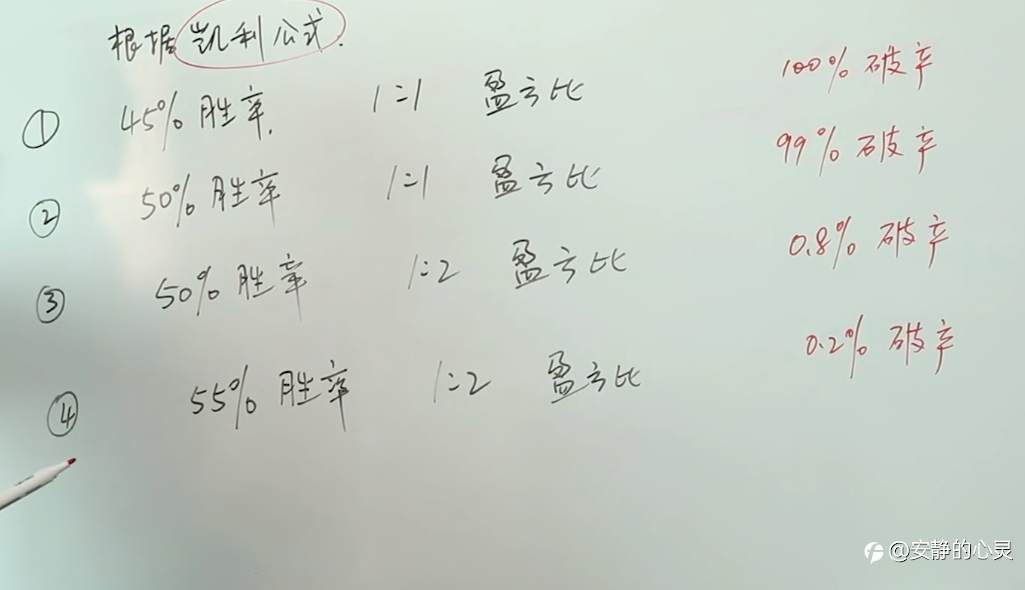 根据凯利公式.
① 45% 胜率. 1:1 盈亏比 100% 破产
② 50% 胜率 1:1 盈亏比 99% 破产
③ 50% 胜率 1:2 盈亏比 0.8% 破产
④ 55% 胜率 1:2 盈亏比 0.2% 破产
@安静的心灵